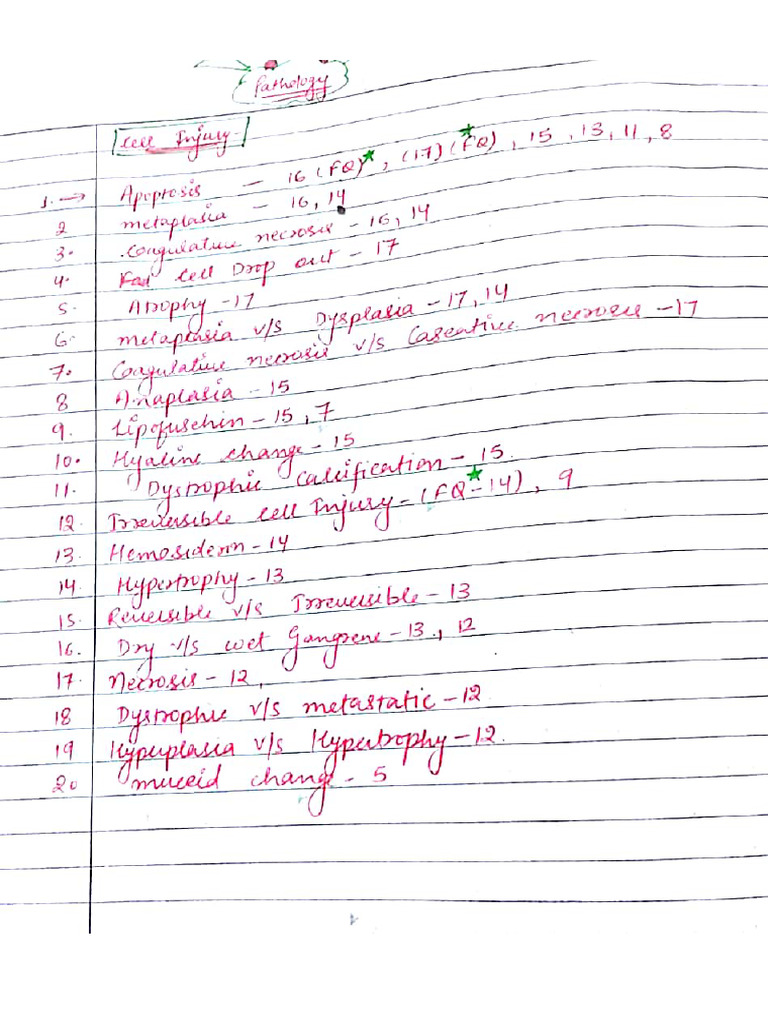 Pathology
Cell Injury-
1. → Apoptosis - 16 (FQ)*, (17) (FQ)*, 15, 13, 11, 8
2 metaplasia - 16, 14
3. Coagulative necrosis - 16, 14
4. cell Drop out - 17
5. Atrophy - 17
6. metaplasia v/s Dysplasia - 17, 14
7. Coagulative necrosis v/s Caseative necrosis - 17
8 Anaplasia - 15
9. Lipofuschin - 15, 7
10. Hyaline change - 15
11. Dystrophic Calcification - 15.
12. Irreversible cell Injury - (FQ* - 14), 9
13. Hemosiderin - 14
14. Hypertrophy - 13
15. Reversible v/s Irreversible - 13
16. Dry v/s wet Gangrene - 13, 12
17. Necrosis - 12,
18 Dystrophic v/s metastatic - 12
19 Hyperplasia v/s Hypertrophy - 12.
20 mucoid change - 5